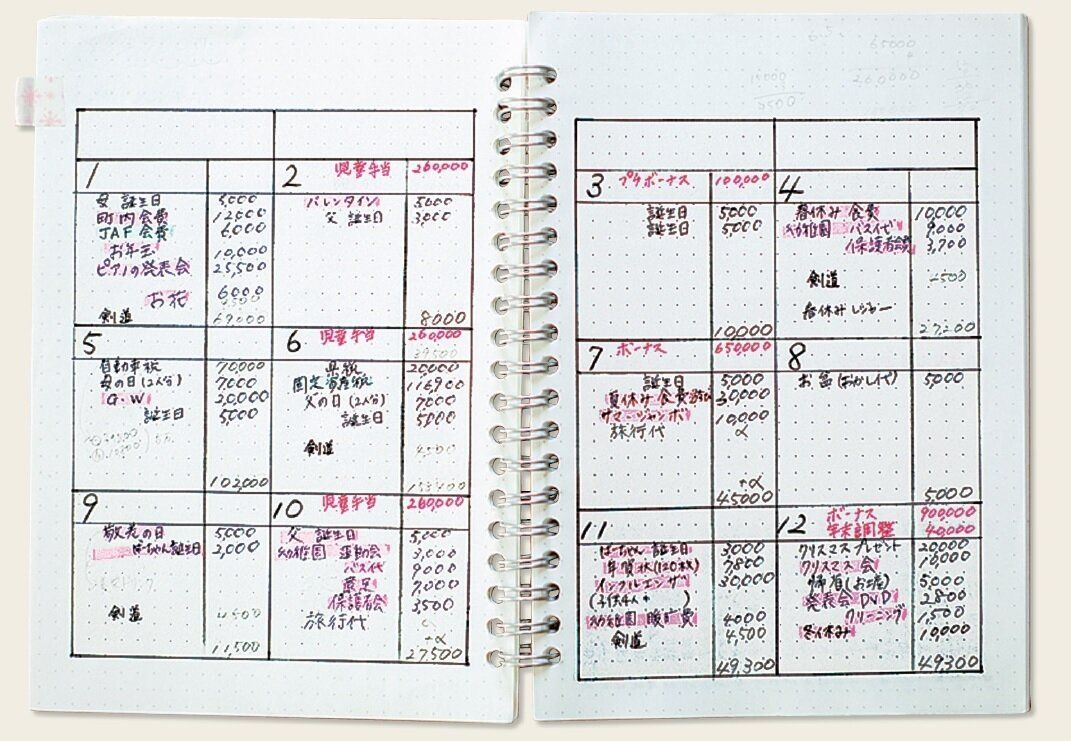 65000
260000
1
母 誕生日 5,000
町内会費 12000
JAF会費 6,000
お年玉 10,000
ピアノの発表会 25,500
お花 6000
剣道 4500
69,000
2 児童手当 260,000
バレンタイン 5000
父 誕生日 3,000
8000
3 プチボーナス 100,000
誕生日 5,000
誕生日 5,000
10,000
4
春休み 食費 10,000
幼稚園 バス代 9,000
保護者会費 3,700
剣道 4500
春休みレジャー
27,200
5
自動車税 70,000
母の日(2人分) 7000
G・W 20,000
誕生日 5,000
102,000
6 児童手当 260,000
39500
県税 20,000
固定資産税 116900
父の日(2人分) 7000
誕生日 5000
剣道 4,500
7 ボーナス 650,000
誕生日 5,000
夏休み 食費 30,000
サマージャンボ 10,000
旅行代 α
+α
45000
8
お盆(おかし代) 5,000
5,000
9
敬老の日 5,000
ばーちゃん誕生日 2,000
剣道 4500
11,500
10 児童手当 260,000
父 誕生日 5,000
幼稚園 運動会 3,000
バス代 9000
遠足 7,000
保護者会 3500
旅行代 α
+α
27,500
11
ばーちゃん 誕生日 3000
年賀状(120枚) 7800
インフルエンザ 30,000
(子供4人+ )
幼稚園 暖房費 4000
剣道 4,500
49,300
12 ボーナス 900000
年末調整 40000
クリスマスプレゼント 20000
クリスマス会 10,000
帰省(お土産) 5000
発表会 DVD 2800
クリーニング 1,500
冬休み 10,000
49,300